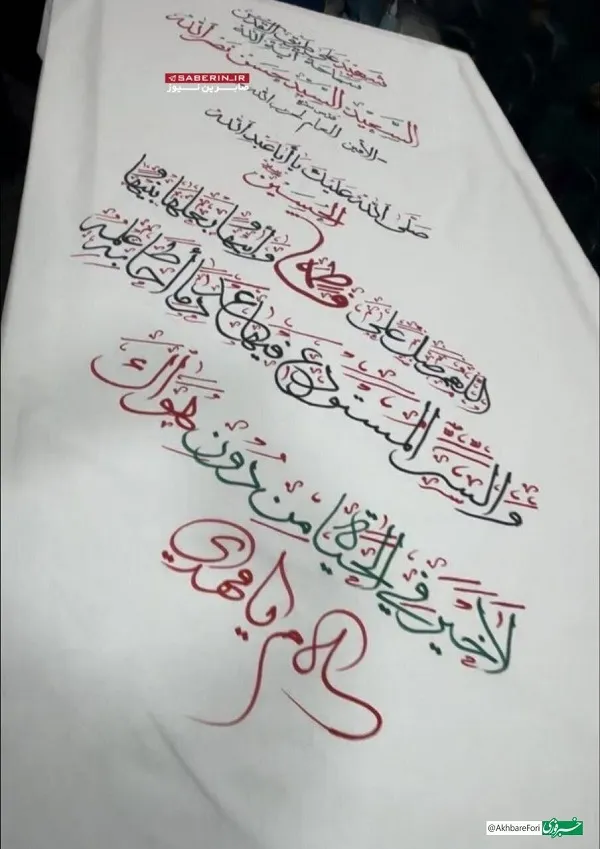 شهيد على طريق القدس
سماحة آية الله
السيد حسن نصر الله
الأمين العام لحزب الله
SABERIN_IR
صابرین نیوز
صلى الله عليك يا أبا عبد الله
الحسين
اللهم صل على فاطمة وأبيها وبعلها وبنيها
والسر المستودع فيها عدد ما أحاط به علمك
لا خير في الحياة من دون هواك
سلام يا مهدي
@AkhbareFori
خبرفوری